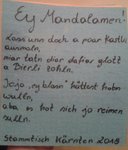 Ey Mandalamen!
Lass uns doch a poar Kastln
ausmoln,
mir tatn dir dafür glott
a Bierli zohln.
Jojo, "ey blasn" hättest hobn
wulln,
aba es hot sich jo reimen
sulln.
Stammtisch Kärnten 2018